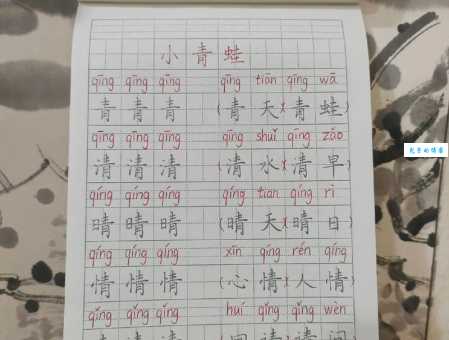 小青蛙
qīng qīng qīng qīng tiān qīng wā
青 青 青 (青天)(青蛙)
qīng qīng qīng qīng shuǐ qīng zǎo
清 清 清 (清水)(清早)
qíng qíng qíng qíng tian qíng rì
晴 晴 晴 (晴天)(晴日)
qíng qíng qíng xīn qíng rén qíng
情 情 情 (心情)(人情)
qǐng qǐng qǐng huí qǐng qǐng wèn